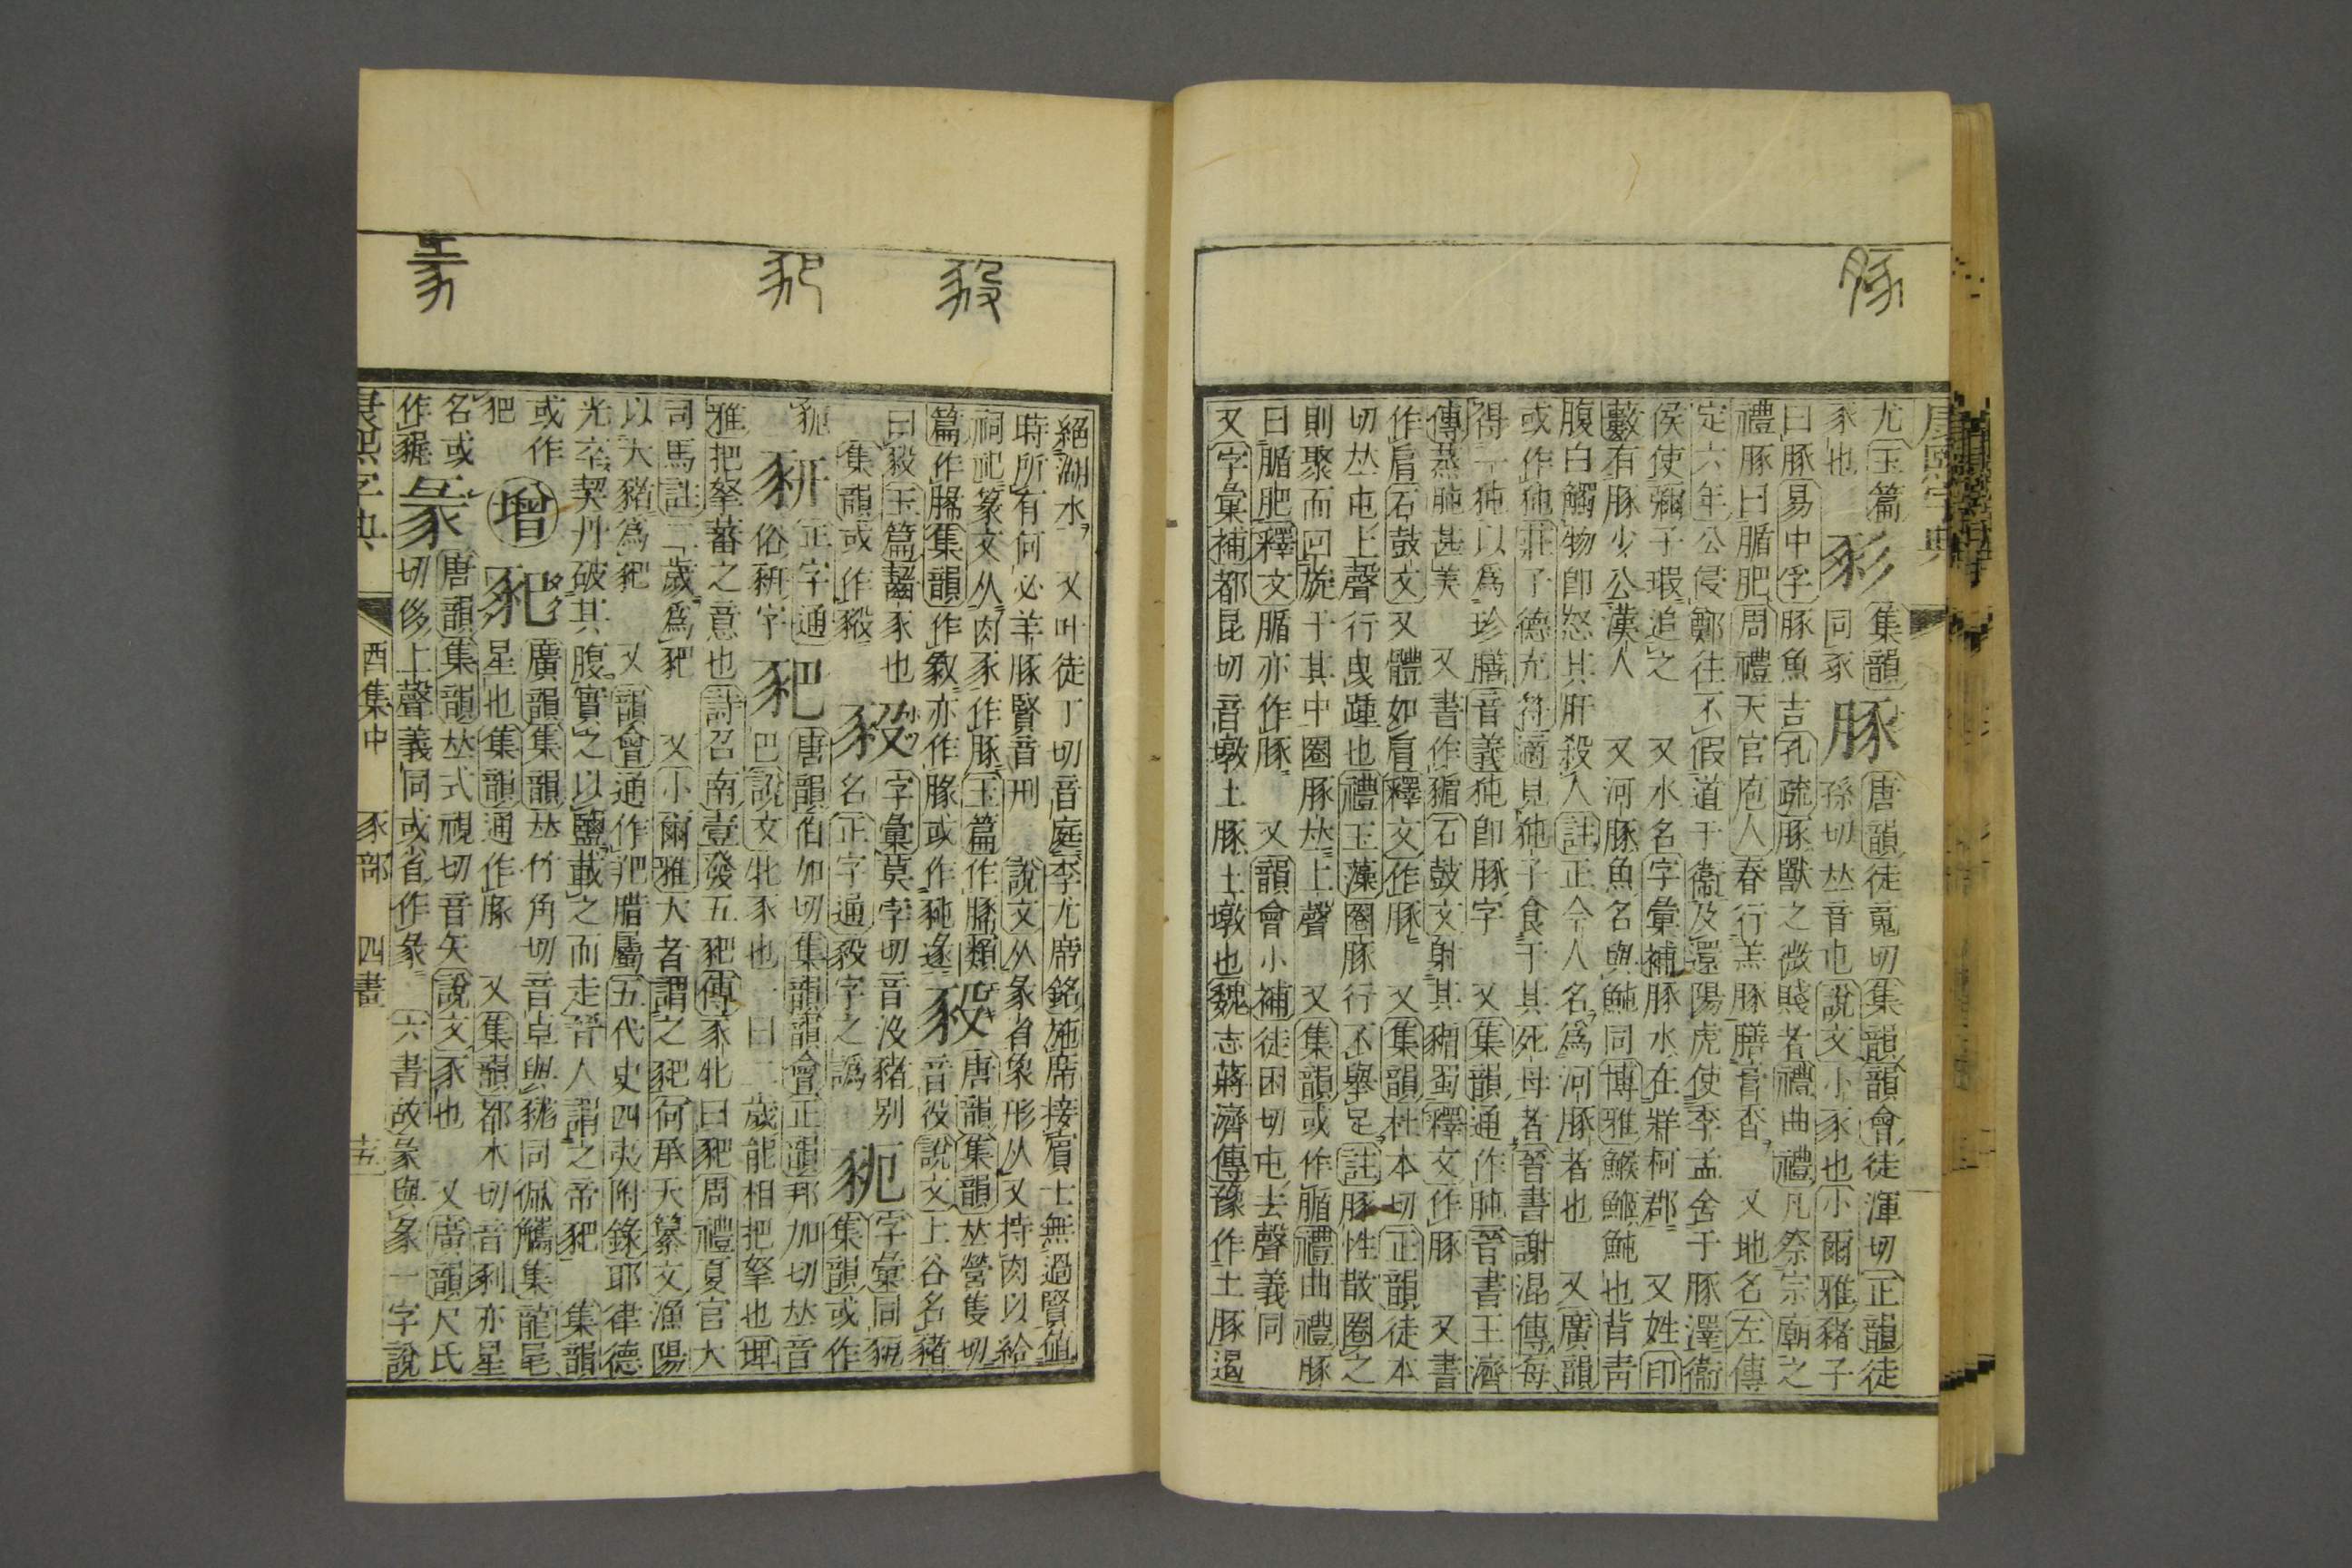 豚
康熙字典
尤玉篇豕也
集韻同豕
豚唐韻徒䰟切集韻韻會徒渾切正韻徒
孫切𠀤音屯說文小豕也小爾雅豬子
曰豚易中孚豚魚吉孔疏豚獸之微賤者禮曲禮凡祭宗廟之
禮豚曰腯肥周禮天官庖人春行羔豚膳膏香又地名左傳
定六年公侵鄭往不假道于衞及還陽虎使季孟舍于豚澤衞
侯使彌子瑕追之又水名字彙補豚水在牂柯郡又姓印
藪有豚少公漢人又河豚魚名與魨同博雅鯸䱌魨也背靑
腹白觸物卽怒其肝殺人註正今人名爲河豚者也又廣韻
或作㹠莊子德充符適見㹠子食于其死母者晉書謝混傳每
得一㹠以爲珍膳音義㹠卽豚字又集韻通作肫晉書王濟
傳蒸肫甚美又書作石鼓文射其蜀釋文作豚又書
作肩石鼓文又體如肩釋文作豚又集韻杜本切正韻徒本
切𠀤屯上聲行曳踵也禮玉藻圈豚行不舉足註豚性散圈之
則聚而回旋于其中圈豚𠀤上聲又集韻或作腯禮曲禮豚
曰腯肥釋文腯亦作豚又韻會小補徒困切屯去聲義同
又字彙補都昆切音墩土豚土墩也魏志蔣濟傳豫作土豚遏
豛
豝
彖
絕湖水又叶徒丁切音庭李尤席銘施席接賓士無過賢值
時所有何必羊豚賢音刑說文从彖省象形从又持肉以給
祠祀篆文从肉豕作豚玉篇作豨類篇作腞集韻作𢿢亦作腞或作㹠遂
豛唐韻集韻𠀤營隻切音役說文上谷名豬
曰豛玉篇齧豕也集韻或作豛
字彙莫孛切音沒豬別名正字通豛字之譌
豟字彙同豟集韻或作豟
豜正字通俗豜字
豝唐韻伯加切集韻韻會正韻邦加切𠀤音
巴說文牝豕也一曰二歲能相把拏也埤
雅把拏蕃之意也詩召南壹發五豝傳豕牝曰豝周禮夏官大
司馬註二歲爲豝又小爾雅大者謂之豝何承天纂文漁陽
以大豬爲豝又韻會通作羓腊屬五代史四夷附錄耶律德
光卒契丹破其腹實之以鹽載之而走晉人謂之帝豝集韻
或作犯
增
廣韻集韻𠀤竹角切音卓與豥同佩觿集龍尾
星也集韻通作豚又集韻都木切音剢亦星
名或作豥
彖唐韻集韻𠀤式視切音矢說文豕也又廣韻尺氏
切侈上聲義同或省作彖六書故彖與彖一字說
康熙字典
酉集中
豕部
四畫
十五